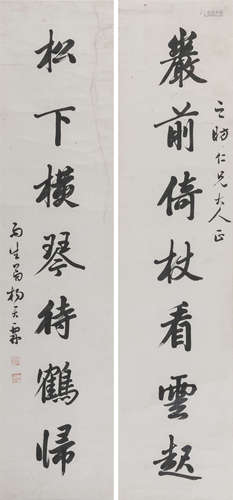 巖前倚杖看雲起
之昉仁兄大人正
松下橫琴待鶴歸
雨生弟楊天霖